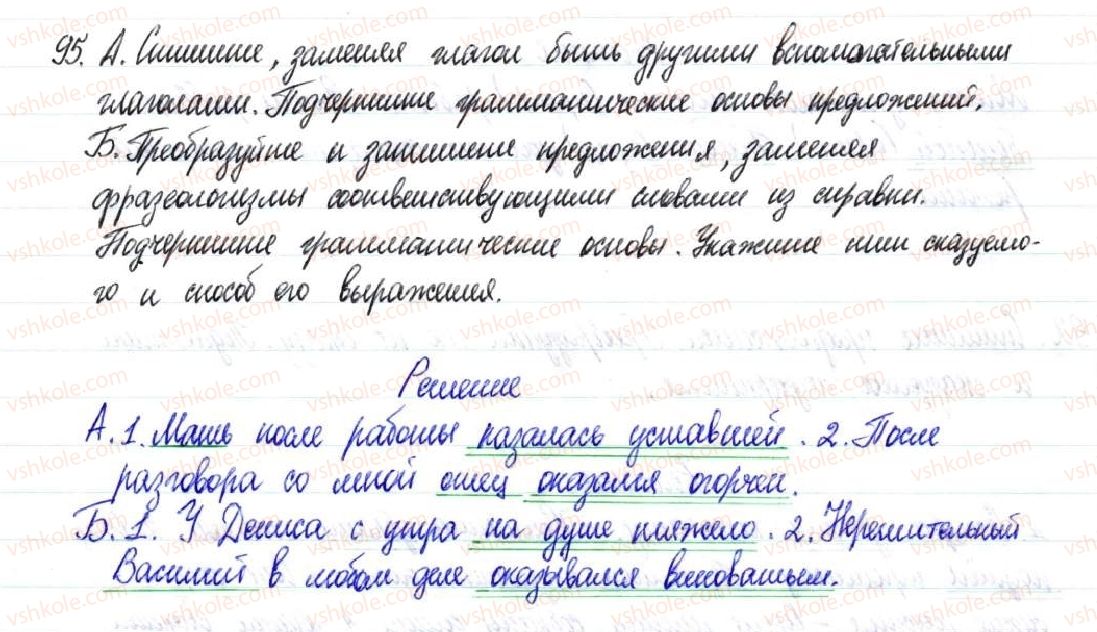 95. А. Спишите, заменяя глагол быть другими вспомогательными
глаголами. Подчеркните грамматические основы предложений.
Б. Преобразуйте и запишите предложения, заменяя
фразеологизмы соответствующими словами из справки.
Подчеркните грамматические основы. Укажите тип сказуемо-
го и способ его выражения.
Решение
А. 1. Мать после работы казалась уставшей. 2. После
разговора со мной отец оказался огорчен.
Б. 1. У Дениса с утра на душе тяжело. 2. Нерешительный
Василий в любом деле оказывался виноватым.